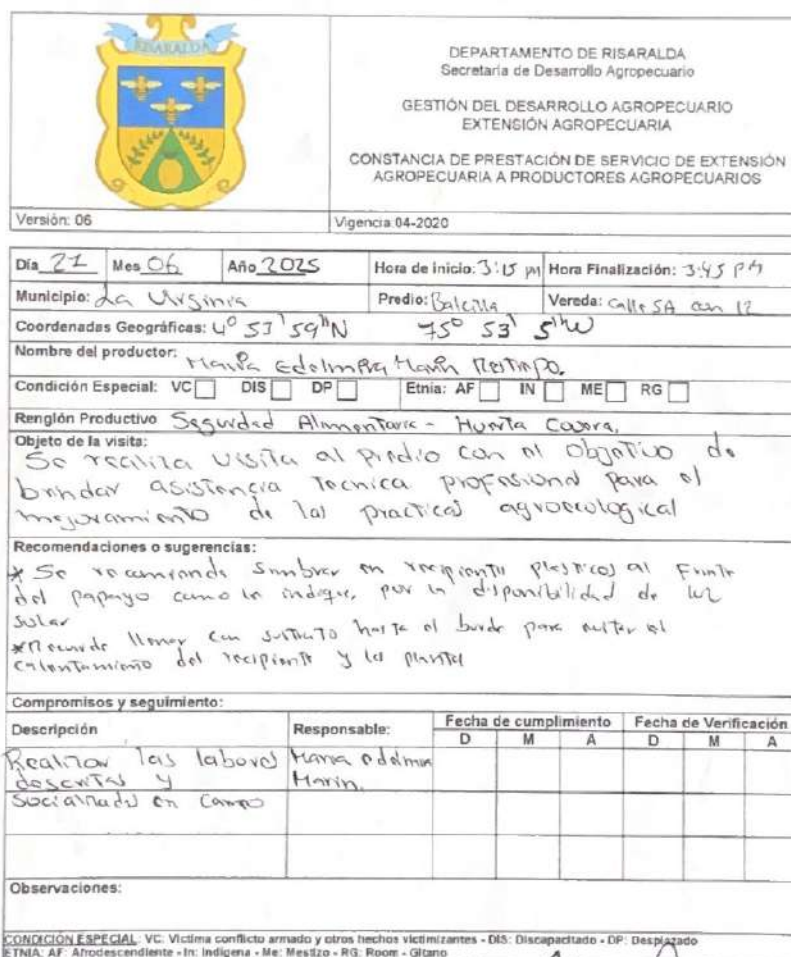 RISARALDA
DEPARTAMENTO DE RISARALDA
Secretaria de Desarrollo Agropecuario
GESTIÓN DEL DESARROLLO AGROPECUARIO
EXTENSIÓN AGROPECUARIA
CONSTANCIA DE PRESTACIÓN DE SERVICIO DE EXTENSIÓN
AGROPECUARIA A PRODUCTORES AGROPECUARIOS
Versión: 06 Vigencia:04-2020
Día 21 Mes 06 Año 2025 Hora de inicio: 3:15 pm Hora Finalización: 3:45 PM
Municipio: La Virginia Predio: Vereda: Calle 5A con 12
Coordenadas Geográficas: 4° 53' 59"N 75° 53' 5"W
Nombre del productor: Maria Edelmira Marin Restrepo.
Condición Especial: VC DIS DP Etnia: AF IN ME RG
Renglón Productivo Seguridad Alimentaria - Huerta Casera.
Objeto de la visita:
Se realiza visita al Predio con el objetivo de
brindar asistencia Tecnica profesional para el
mejoramiento de las practicas agroecologicas
Recomendaciones o sugerencias:
* Se recomienda sembrar en recipientes plasticos al Frente
del papayo como le indique, por la disponibilidad de luz
solar
* Recuerde llenar con sustrato hasta el borde para evitar el
calentamiento del recipiente y las plantas
Compromisos y seguimiento:
Descripción Responsable: Fecha de cumplimiento Fecha de Verificación
D M A D M A
Realizar las labores Maria edelmira
descritas y Marin.
en Campo
Observaciones:
CONDICIÓN ESPECIAL: VC: Victima conflicto armado y otros hechos victimizantes - DIS: Discapacitado - DP: Desplazado
ETNIA: AF: Afrodescendiente - In: Indigena - Me: Mestizo - RG: Room - Gitano